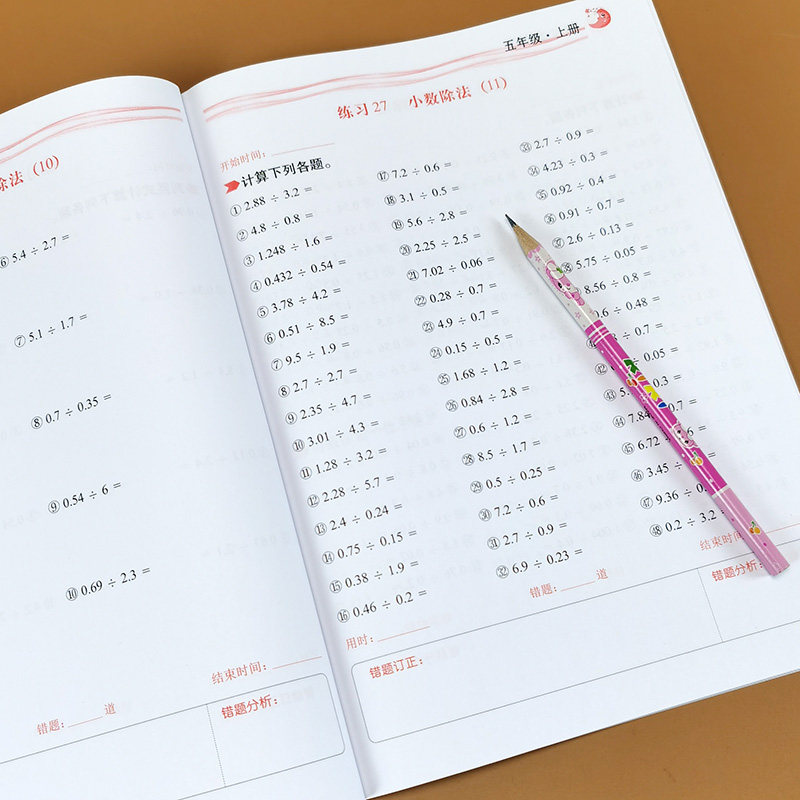 除法（10）
⑥ 5.4 ÷ 2.7 =
⑦ 5.1 ÷ 1.7 =
⑧ 0.7 ÷ 0.35 =
⑨ 0.54 ÷ 6 =
⑩ 0.69 ÷ 2.3 =
结束时间：
错题： 道
错题分析：
五年级·上册
练习27 小数除法（11）
开始时间：
计算下列各题。
① 2.88 ÷ 3.2 =
② 4.8 ÷ 0.8 =
③ 1.248 ÷ 1.6 =
④ 0.432 ÷ 0.54 =
⑤ 3.78 ÷ 4.2 =
⑥ 0.51 ÷ 8.5 =
⑦ 9.5 ÷ 1.9 =
⑧ 2.7 ÷ 2.7 =
⑨ 2.35 ÷ 4.7 =
⑩ 3.01 ÷ 4.3 =
⑪ 1.28 ÷ 3.2 =
⑫ 2.28 ÷ 5.7 =
⑬ 2.4 ÷ 0.24 =
⑭ 0.75 ÷ 0.15 =
⑮ 0.38 ÷ 1.9 =
⑯ 0.46 ÷ 0.2 =
⑰ 7.2 ÷ 0.6 =
⑱ 3.1 ÷ 0.5 =
⑲ 5.6 ÷ 2.8 =
⑳ 2.25 ÷ 2.5 =
㉑ 7.02 ÷ 0.06 =
㉒ 0.28 ÷ 0.7 =
㉓ 4.9 ÷ 0.7 =
㉔ 0.15 ÷ 0.5 =
㉕ 1.68 ÷ 1.2 =
㉖ 0.84 ÷ 2.8 =
㉗ 0.6 ÷ 1.2 =
㉘ 8.5 ÷ 1.7 =
㉙ 0.5 ÷ 0.25 =
㉚ 7.2 ÷ 0.6 =
㉛ 2.7 ÷ 0.9 =
㉜ 6.9 ÷ 0.23 =
㉝ 2.7 ÷ 0.9 =
㉞ 4.23 ÷ 0.3 =
㉟ 0.92 ÷ 0.4 =
㊱ 0.91 ÷ 0.7 =
㊲ 2.6 ÷ 0.13 =
㊳ 5.75 ÷ 0.05 =
8.56 ÷ 0.8 =
0.6 ÷ 0.48 =
÷ 0.7 =
㊷ ÷ 0.05 =
㊸ 5. 0.3 =
㊹ 7.84 0.7 =
㊺ 6.72 ÷ 6 =
㊻ 3.45 ÷ =
㊼ 9.36 ÷ 0. =
㊽ 0.2 ÷ 3.2 =
结束时间：
用时：
错题： 道
错题订正：
错题分析：